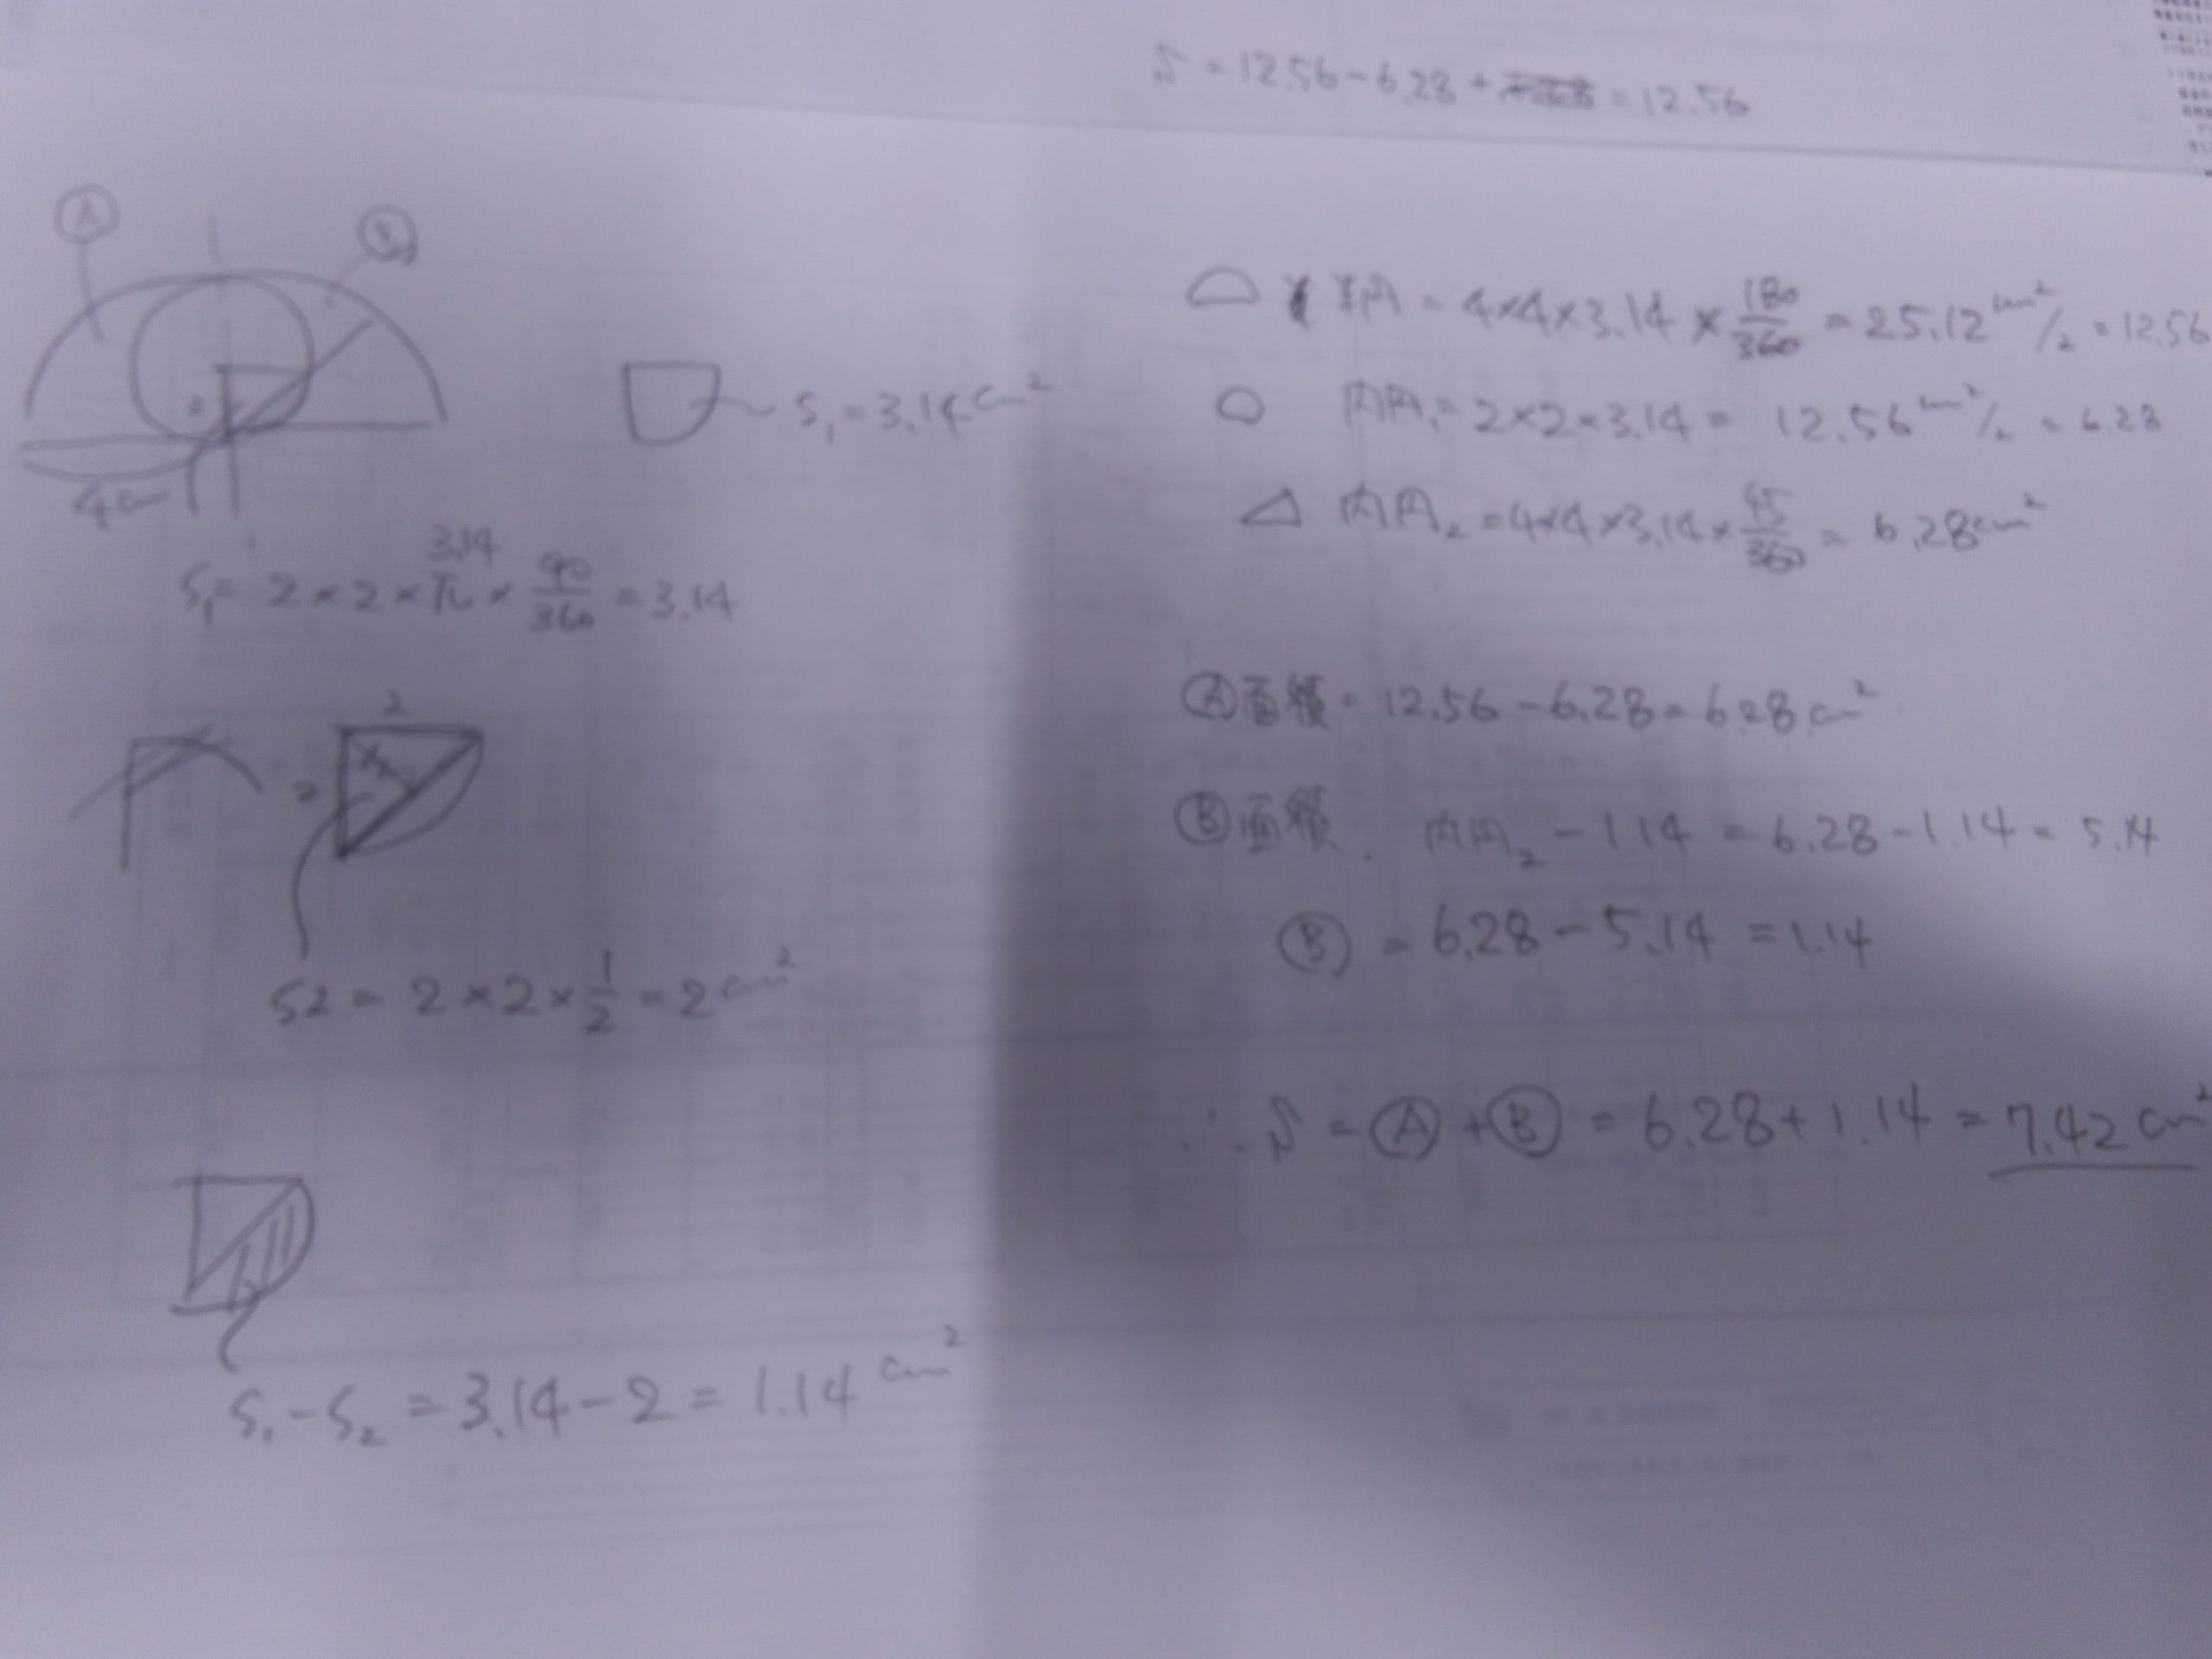 S = 12.56 - 6.28 + = 12.56
Ⓐ
Ⓑ
2
4cm
S₁ = 3.14 cm²
S₁ = 2 × 2 × π × 90/360 = 3.14
3.14
2
2
S2 = 2 × 2 × 1/2 = 2 cm²
S₁ - S₂ = 3.14 - 2 = 1.14 cm²
半円 = 4×4×3.14 × 180/360 = 25.12 cm²/2 = 12.56
内円₁ = 2×2×3.14 = 12.56 cm²/2 = 6.28
内円₂ = 4×4×3.14 × 45/360 = 6.28 cm²
Ⓐ面積 = 12.56 - 6.28 = 6.28 cm²
Ⓑ面積. 内円₂ - 1.14 = 6.28 - 1.14 = 5.14
Ⓑ = 6.28 - 5.14 = 1.14
∴ S = Ⓐ + Ⓑ = 6.28 + 1.14 = 7.42 cm²